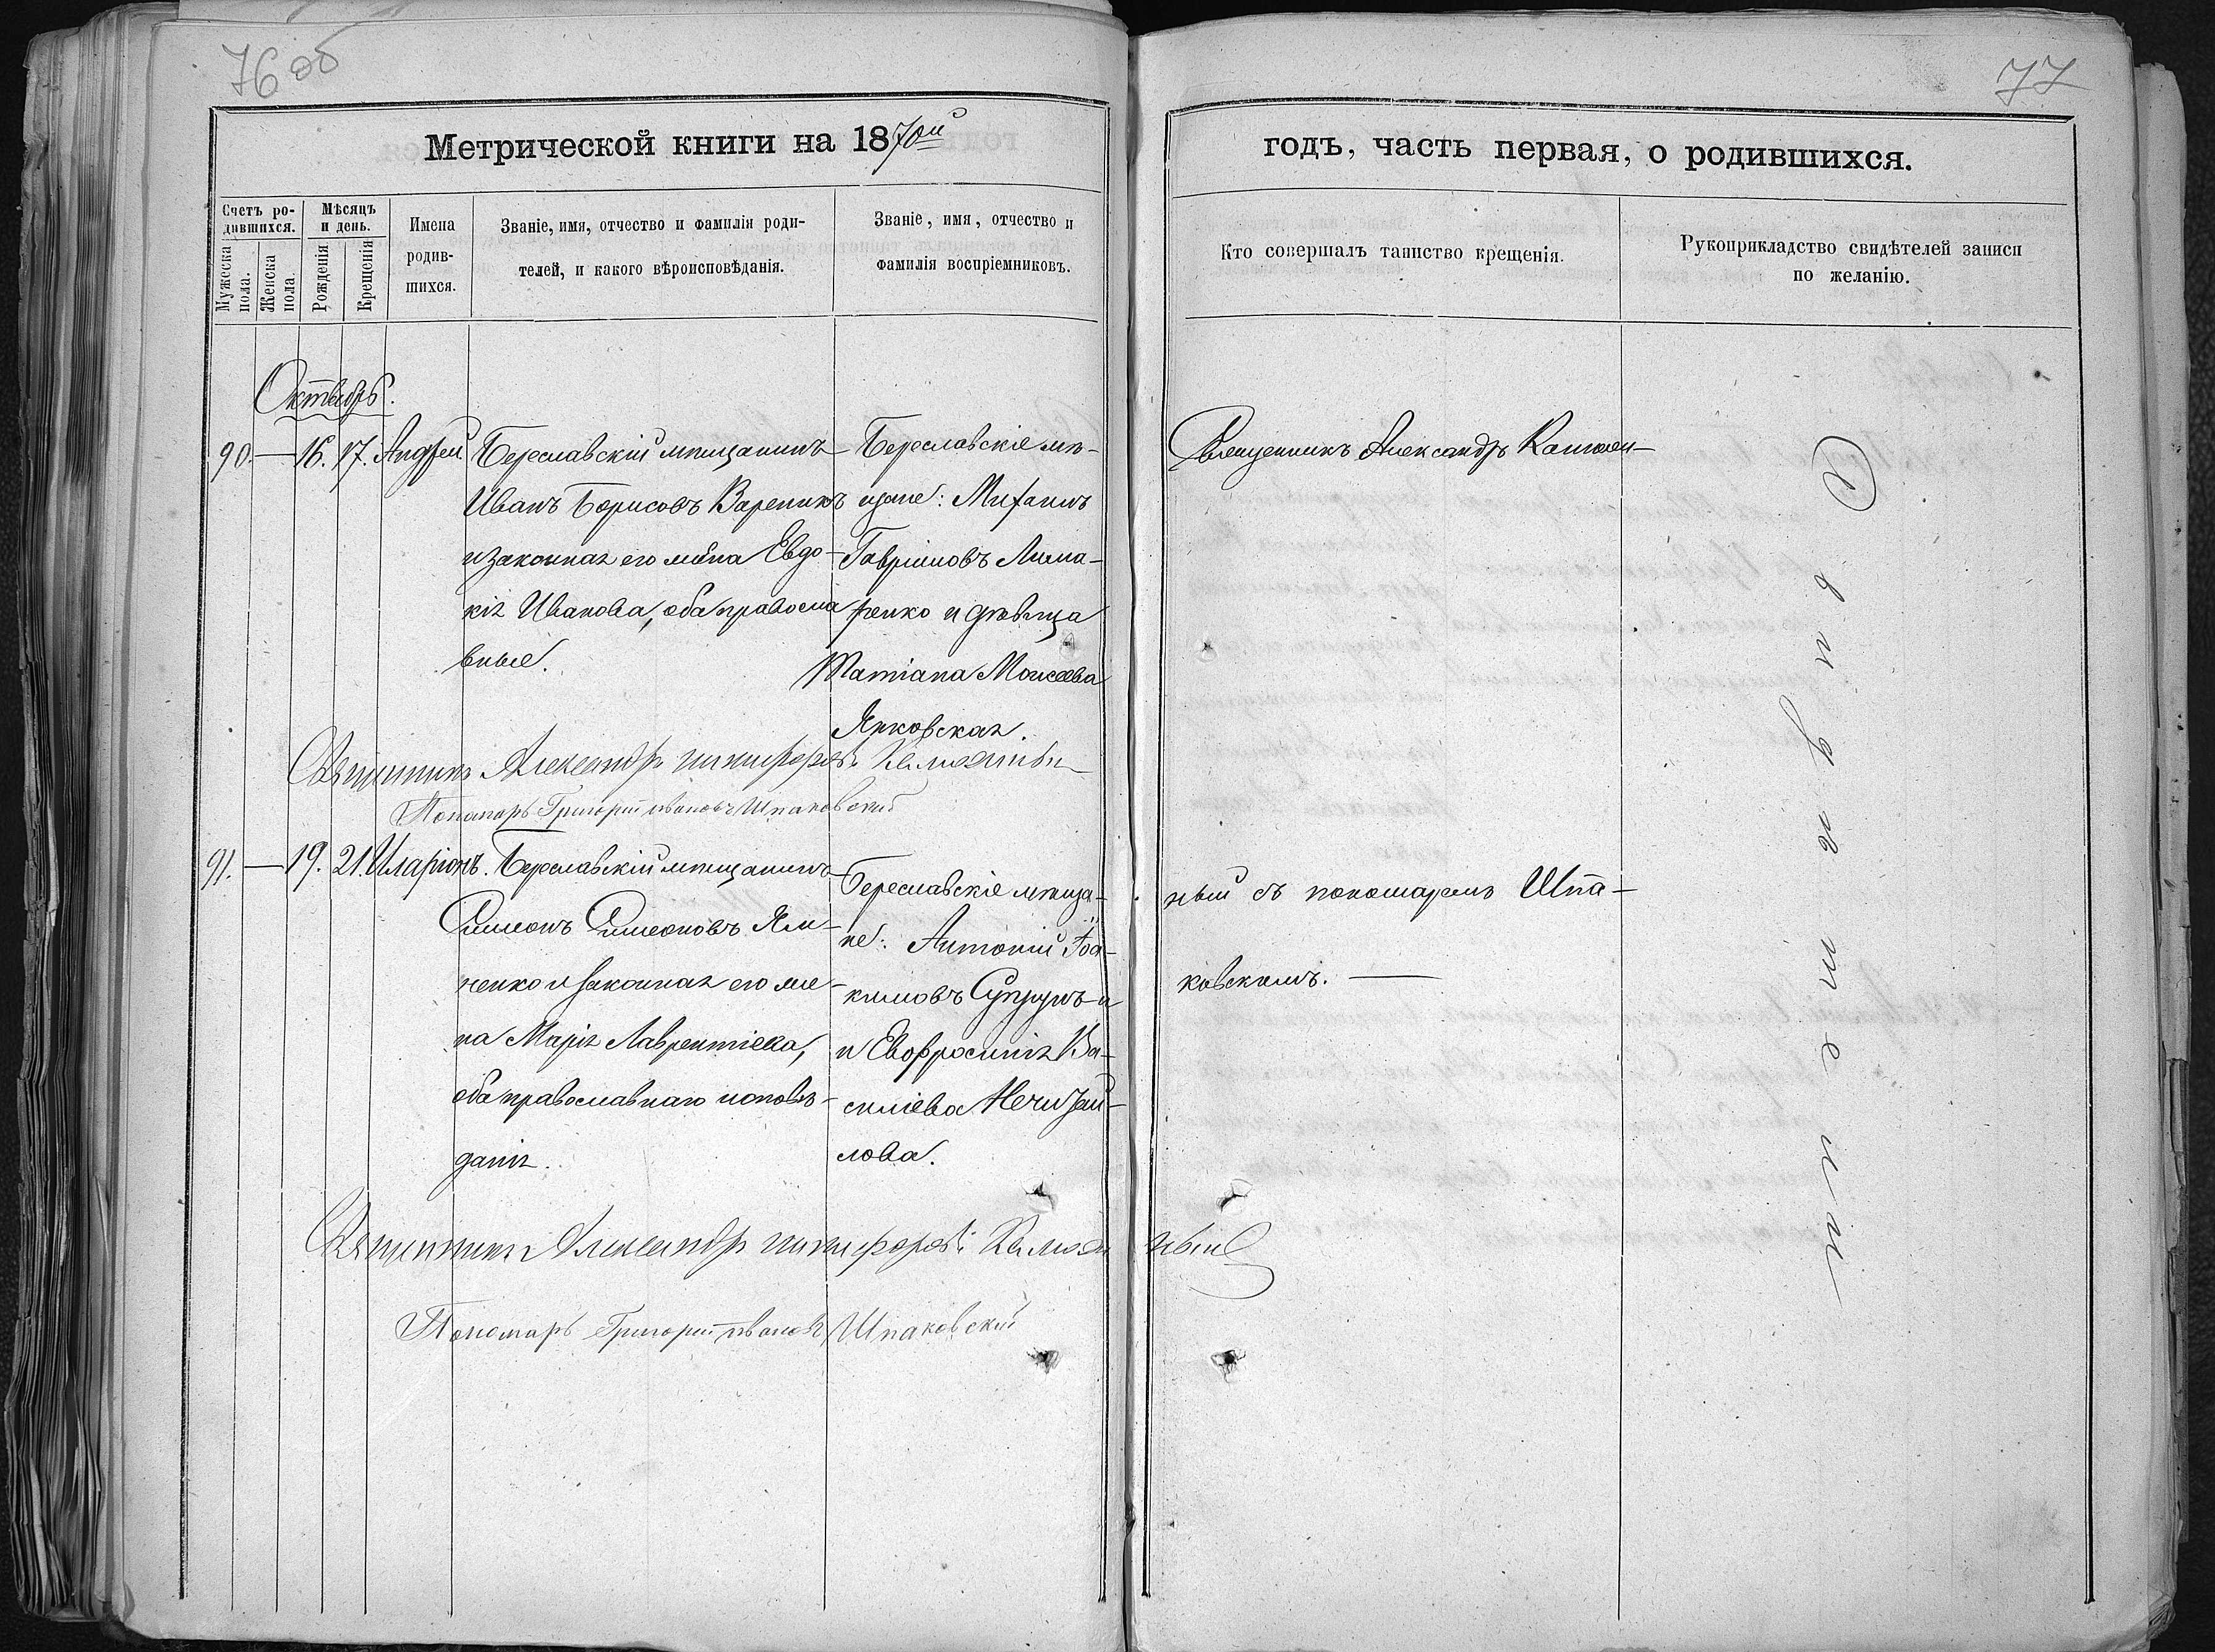 76 об
77
Метрической книги на 1870ый
годъ, часть первая, о родившихся.
Счетъ ро-
дившихся.
Мужеска
пола.
Женска
пола.
Мѣсяцъ
и день.
Рожденія
Крещенія
Имена
родив-
шихся.
Званіе, имя, отчество и фамилія роди-
телей, и какого вѣроисповѣданія.
Званіе, имя, отчество и
фамилія воспріемниковъ.
Кто совершалъ таинство крещенія.
Рукоприкладство свидѣтелей записи
по желанію.
Октябрь.
90. — 16. 17. Андрей.
Береславскій мѣщанинъ
Иванъ Борисовъ Вареникъ
и законная его жена Евдо-
кія Иванова, оба правосла
вные.
Береславскіе мѣ-
щане: Михаилъ
Гавріиловъ Лима-
ренко и дѣвица
Татіана Моисеева
Янковская.
Священникъ Александръ
Священникъ Александръ Никифоровъ
Пономарь Григорій Ивановъ Шпаковскій
91. — 19. 21. Иларіонъ.
Береславскій мѣщанинъ
Симеонъ Симеоновъ Ям-
ченко и законная его же-
на Марія Лаврентіева,
оба православнаго исповѣ-
данія.
Береславскіе мѣща-
не: Антоній Іоа-
кимовъ Супрунъ и
и Евфросинія Ва-
силіева Нечи
лова.
ный съ пономаремъ Шпа-
ковскимъ. —
Священникъ Александръ Никифоровъ
Пономарь Григорій Ивановъ Шпаковскій